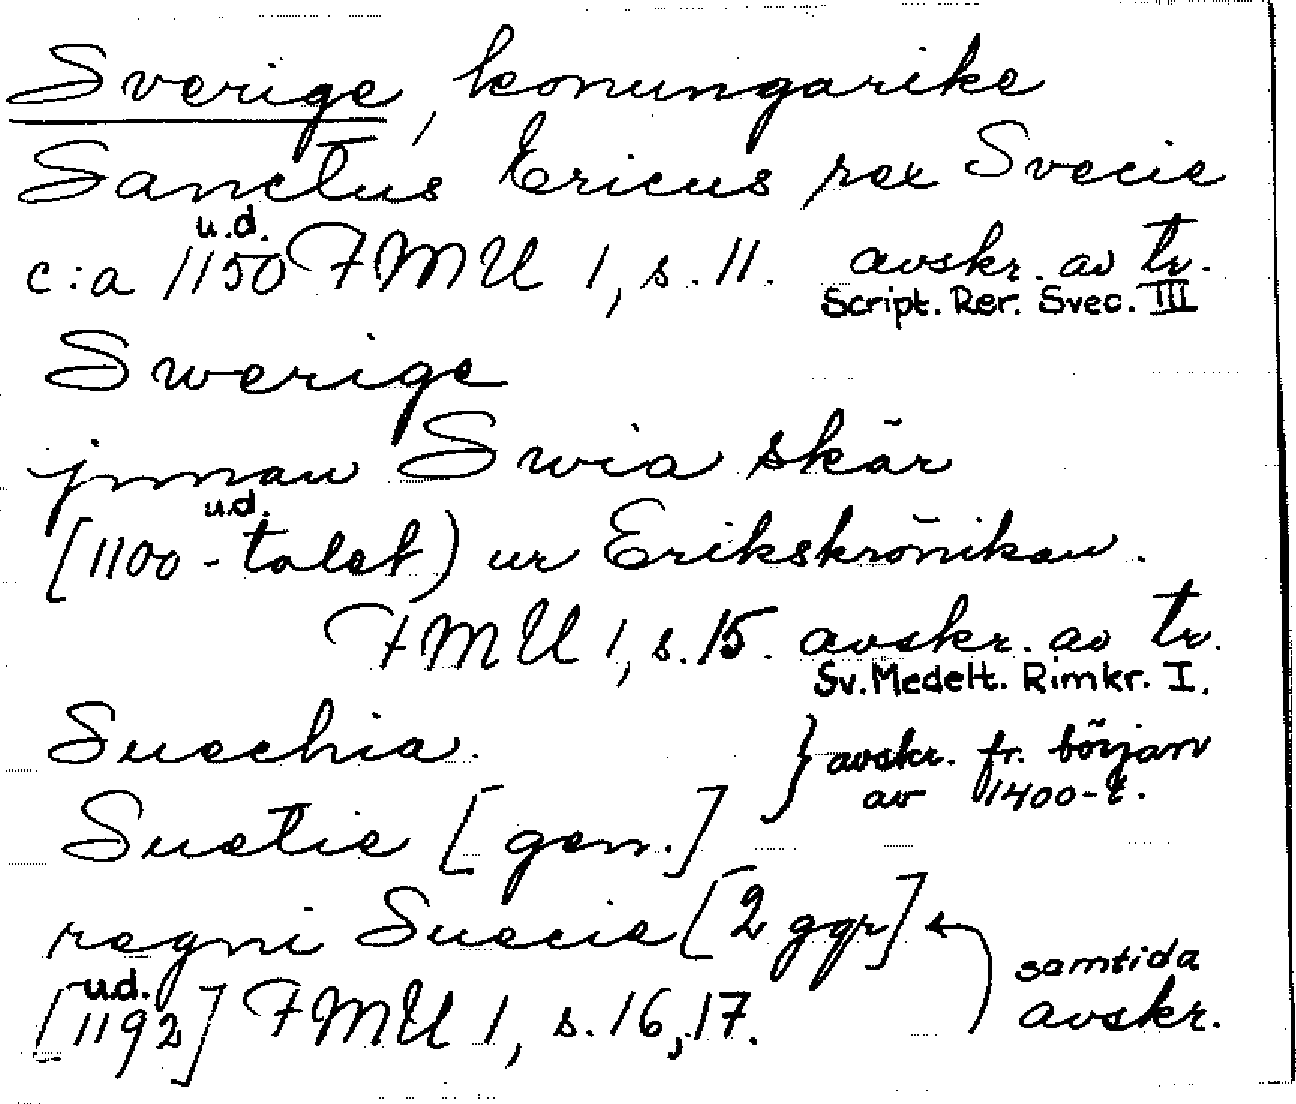 Sverige, konungarike
Sanctus Ericus rex Svecie
u.d.
c:a 1150 FMU 1, s. 11. avskr. av tr.
Script. Rer. Svec. III
Swerige
jnnan Swia skär
u.d.
[1100-talet) ur Erikskrönikan.
FMU 1, s. 15. avskr. av tr.
Sv. Medelt. Rimkr. I.
Suechia. } avskr. fr. början
av 1400-t.
Suetie [gen.]
regni Suecie [2 ggr]
samtida
u.d.
[1192] FMU 1, s. 16, 17. avskr.